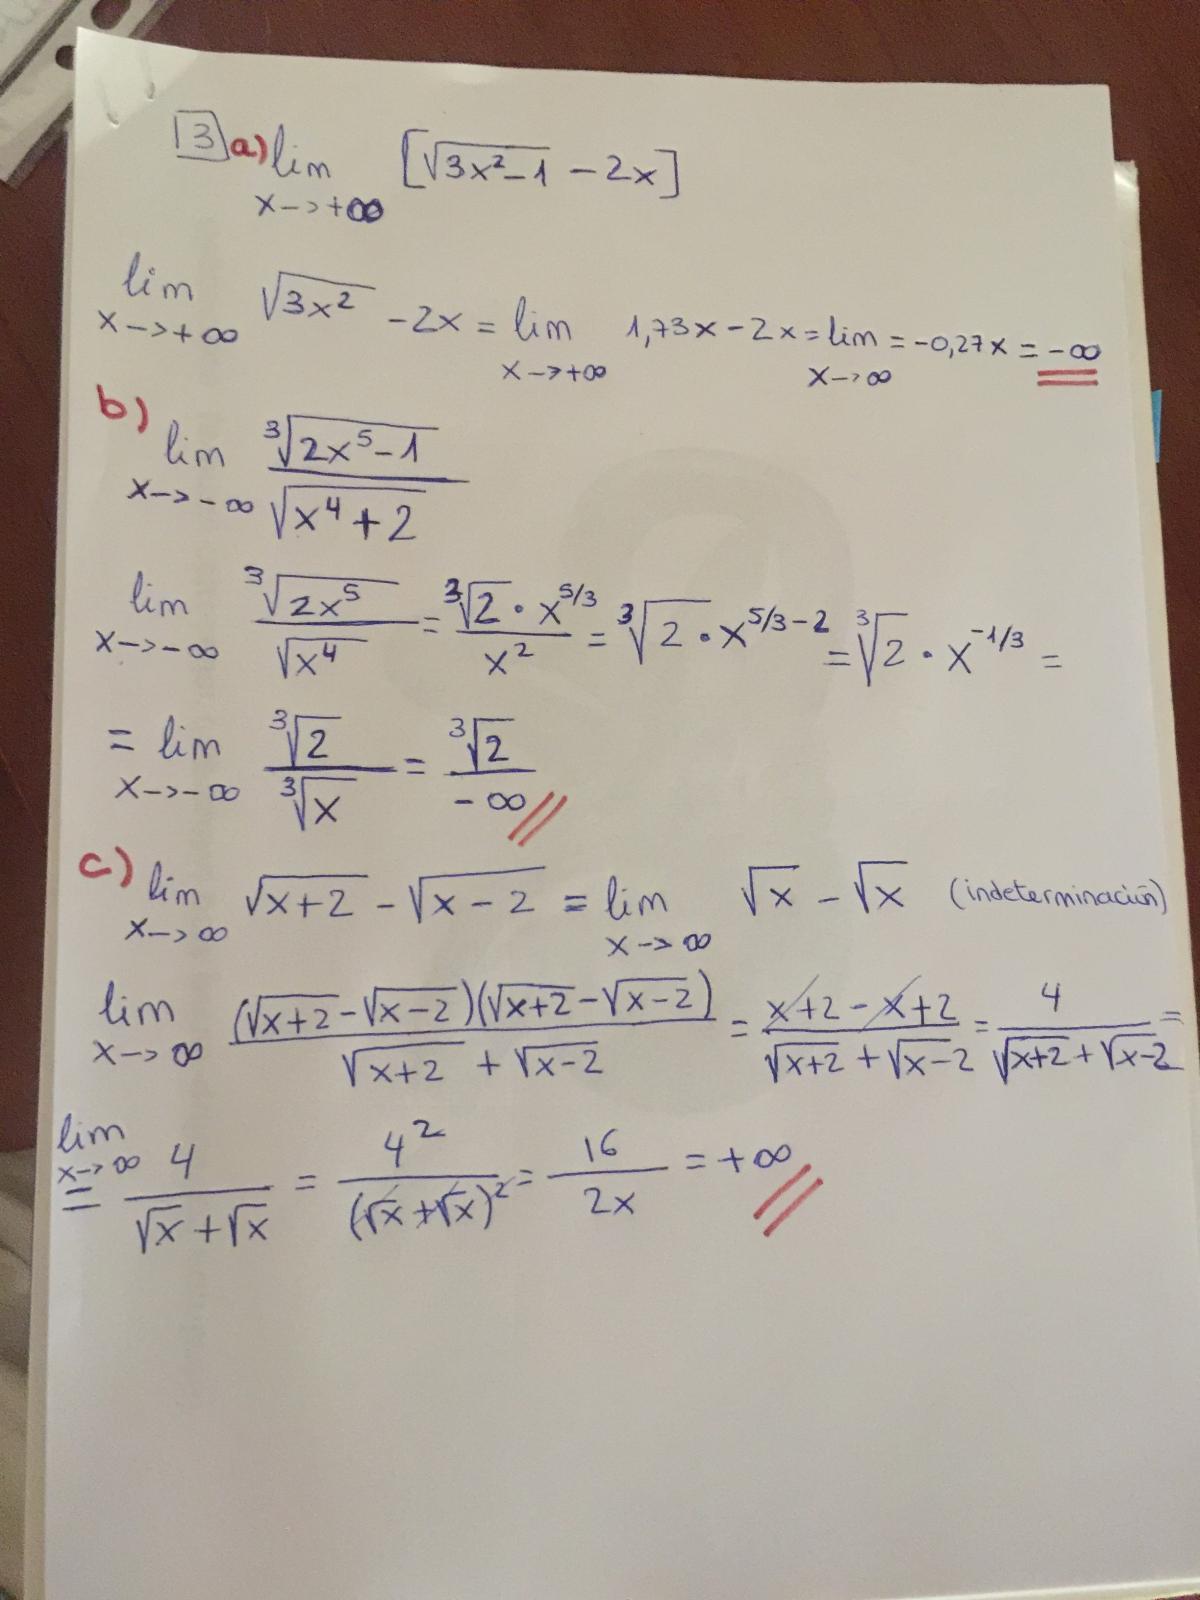 13 a) lim [√3x²-1 - 2x]
x->+∞
lim √3x² - 2x = lim 1,73x - 2x = lim = -0,27x = -∞
x->+∞ x->+∞ x->∞
b) lim ³√2x⁵-1 / √x⁴+2
x->-∞
lim ³√2x⁵ / √x⁴ = ³√2 · x^5/3 / x² = ³√2 · x^5/3-2 = ³√2 · x^-1/3 =
x->-∞
= lim ³√2 / ³√x = ³√2 / -∞
x->-∞
c) lim √x+2 - √x-2 = lim √x - √x (indeterminación)
x->∞ x->∞
lim (√x+2 - √x-2)(√x+2 - √x-2) / √x+2 + √x-2 = x+2-x+2 / √x+2 + √x-2 = 4 / √x+2 + √x-2 =
x->∞
lim
x->∞
= 4 / √x + √x = 4² / (√x + √x)² = 16 / 2x = +∞